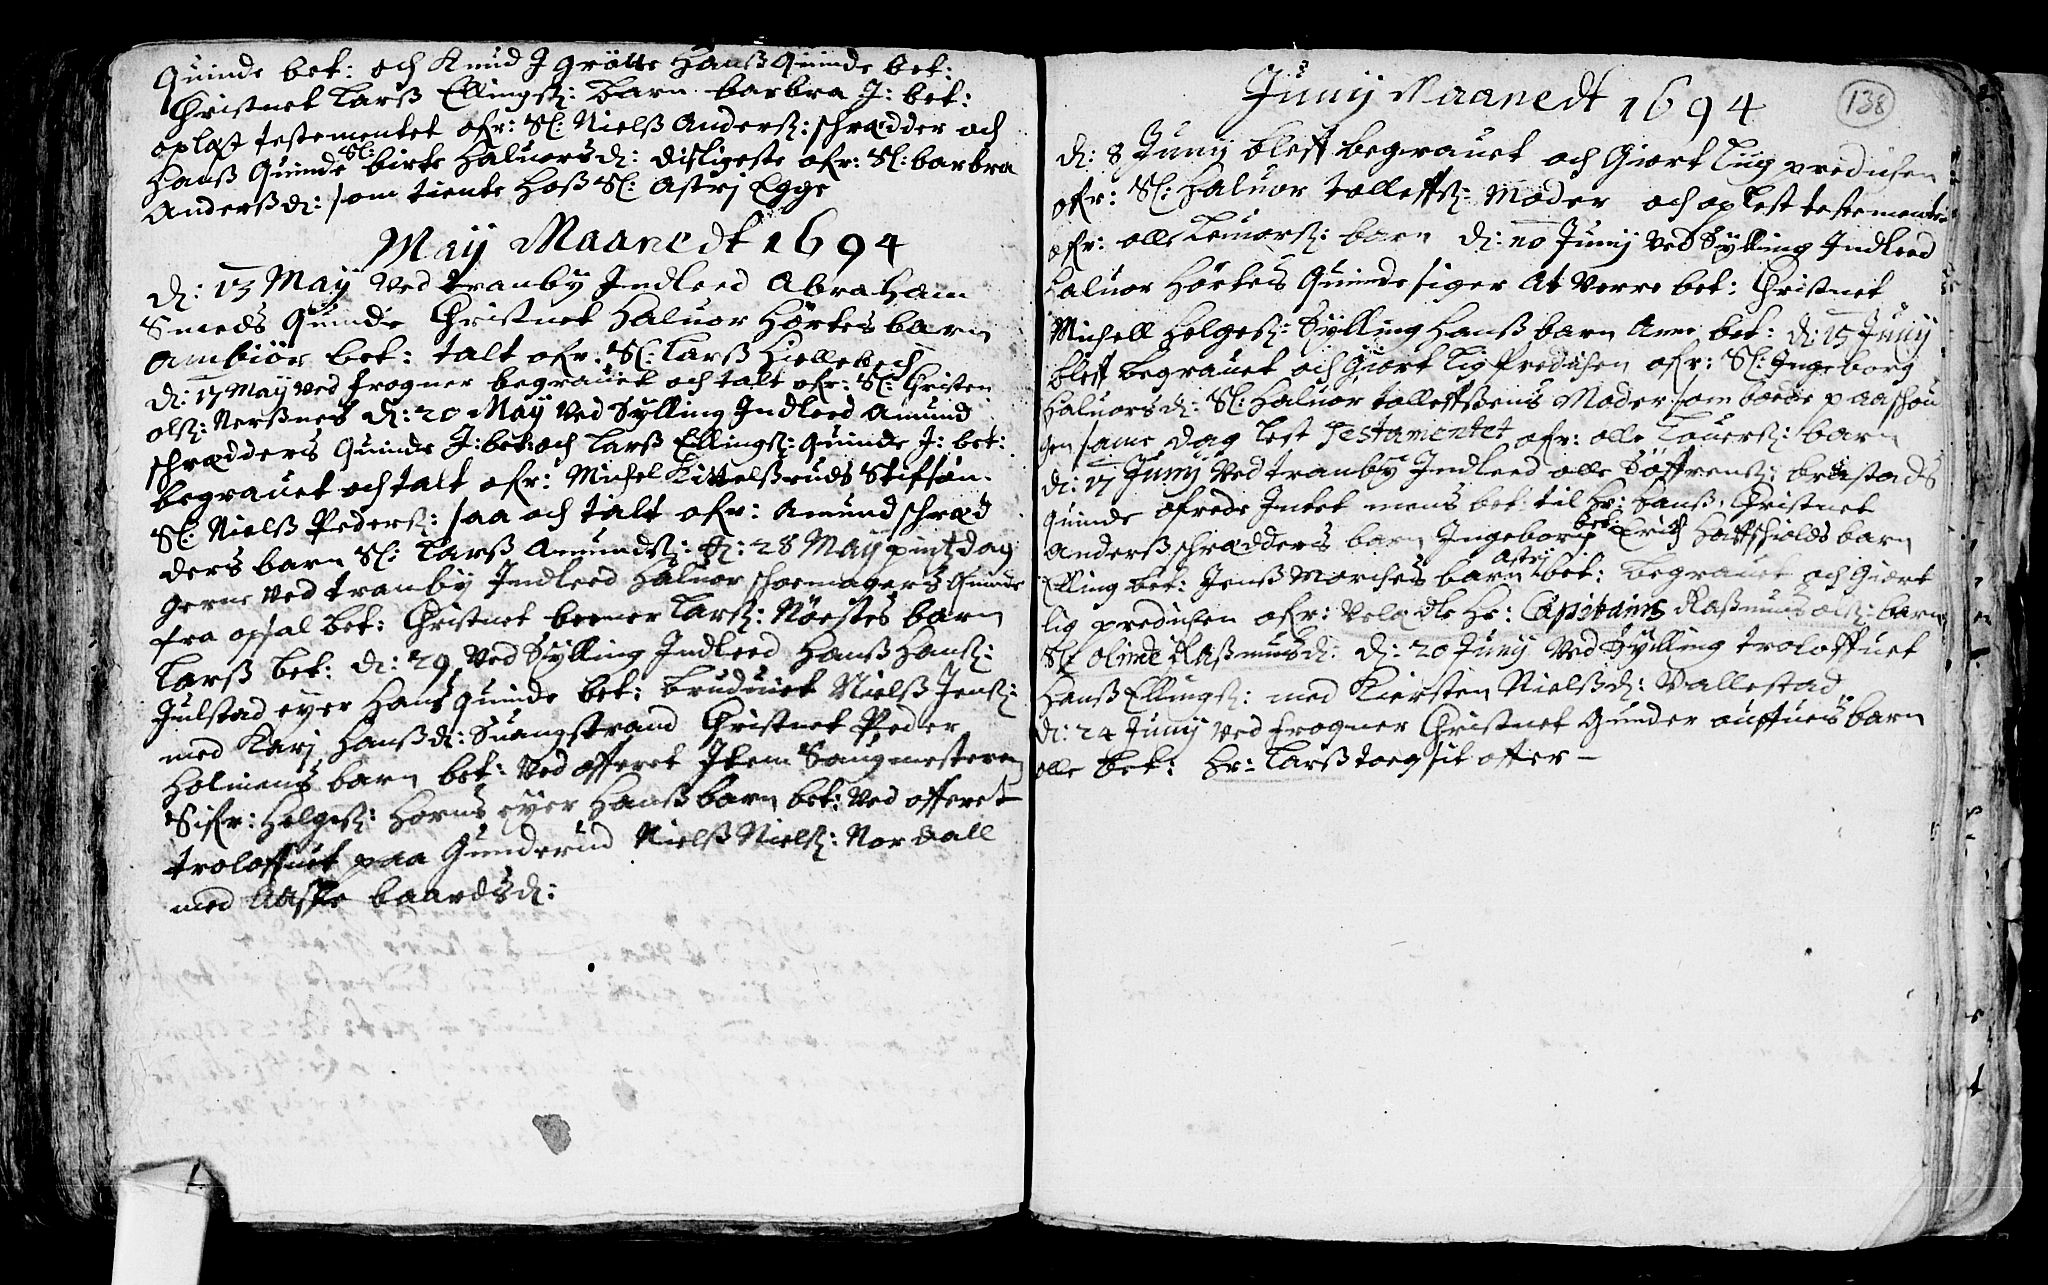 Quinde bet: och Knud I grötte Hanß Quinde bet:
Christnet Larß Ellingsß: barn barbra J: bet:
oplæst testementet ofr: Sl: Nielß Andersß: schrædder och
Hanß Quinde Sl: birte Haluorsdr: disligeste ofr: Sl: barbra
Anderßdr: som tiente hoß Sl: Astrj Egge
Maij Maanedt 1694
d: 13 Maij ved tranby Indleed Abraham
Smeds Quinde Christnet Haluor Hörtes barn
Ambiör bet: talt ofr: Sl: Larß Giellebech
d: 17 Maij ved frogner begrauet och talt ofr: Sl: Christen
olsß: Nersnes d: 20 Maij ved Sylling Indleed Amund
schrædders Quinde J: bet: och Larß Ellingsß: Quinde J: bet:
begrauet och talt ofr: Michel Kittelßruds Stifsön
Sl: Nielß Pedersß: saa och talt ofr: Amund schræd
ders barn Sl: Larß Amundsß: d: 28 Maij pintzdag
gerne ved tranby Indleed Haluor schoemagers Quinde
fra opsal bet: Christnet Larsß: Nöestes barn
Larß bet: d: 29 ved Sylling Indleed Hanß Hansß:
Julstad eyer Hans quinde bet: brudviet Nielß Jensß:
med Karj Hanßdr: Suangstrand Christnet Peder
Holmens barn bet: ved offeret Item Sangmesteren
Sifr: Helgesß: Horns eyer Hanß barn bet: ved offeret
troloffuet paa Gunderud Nielß Nielsß: Nordall
med Aaste baardsdr:
138
Junij Maanedt 1694
d: 8 Junij bleff begrauet och Giort Liig predichen
ofr: Sl: Haluor tolleffsß: Moder och oplest testementet
ofr: olle Leuorsß: barn d: 10 Junij ved Sylling Indleed
Haluor Hörtes Quinde siger At Verre bet: Christnet
Michell Helgesß: Sylling Hanß barn Anne bet: d: 15 Junij
bleff begrauet och Giort Lig Predichen ofr: Sl: Ingeborg
Haluorsdr: Sl: Haluor tolleffsens Moder som boede paa schou
gen same dag lest Testamentet ofr: olle Leuersß: barn
d: 17 Junij ved tranby Indleed olle Söffrensß: brastads
quinde ofrede Intet mens bet: til Hr: Hanß, Christnet
Anderß schrædders barn Ingeborig bet: Erich Hoffscholds barn
Elling bet: Jenß Morches barn Astrj bet: begrauet och Giort
lig predichen ofr: Velædle Hr: Capitains Raßmus olsß: barn
Sl: olime Raßmusdr: d: 20 Junij ved Sylling troloffuet
Hanß Ellingsß: med Kiersten Nielßdr: Vallestad
d: 24 Junij ved frogner Christnet Gunder barn
olle bet: Hr: Larß toeg sit offer –